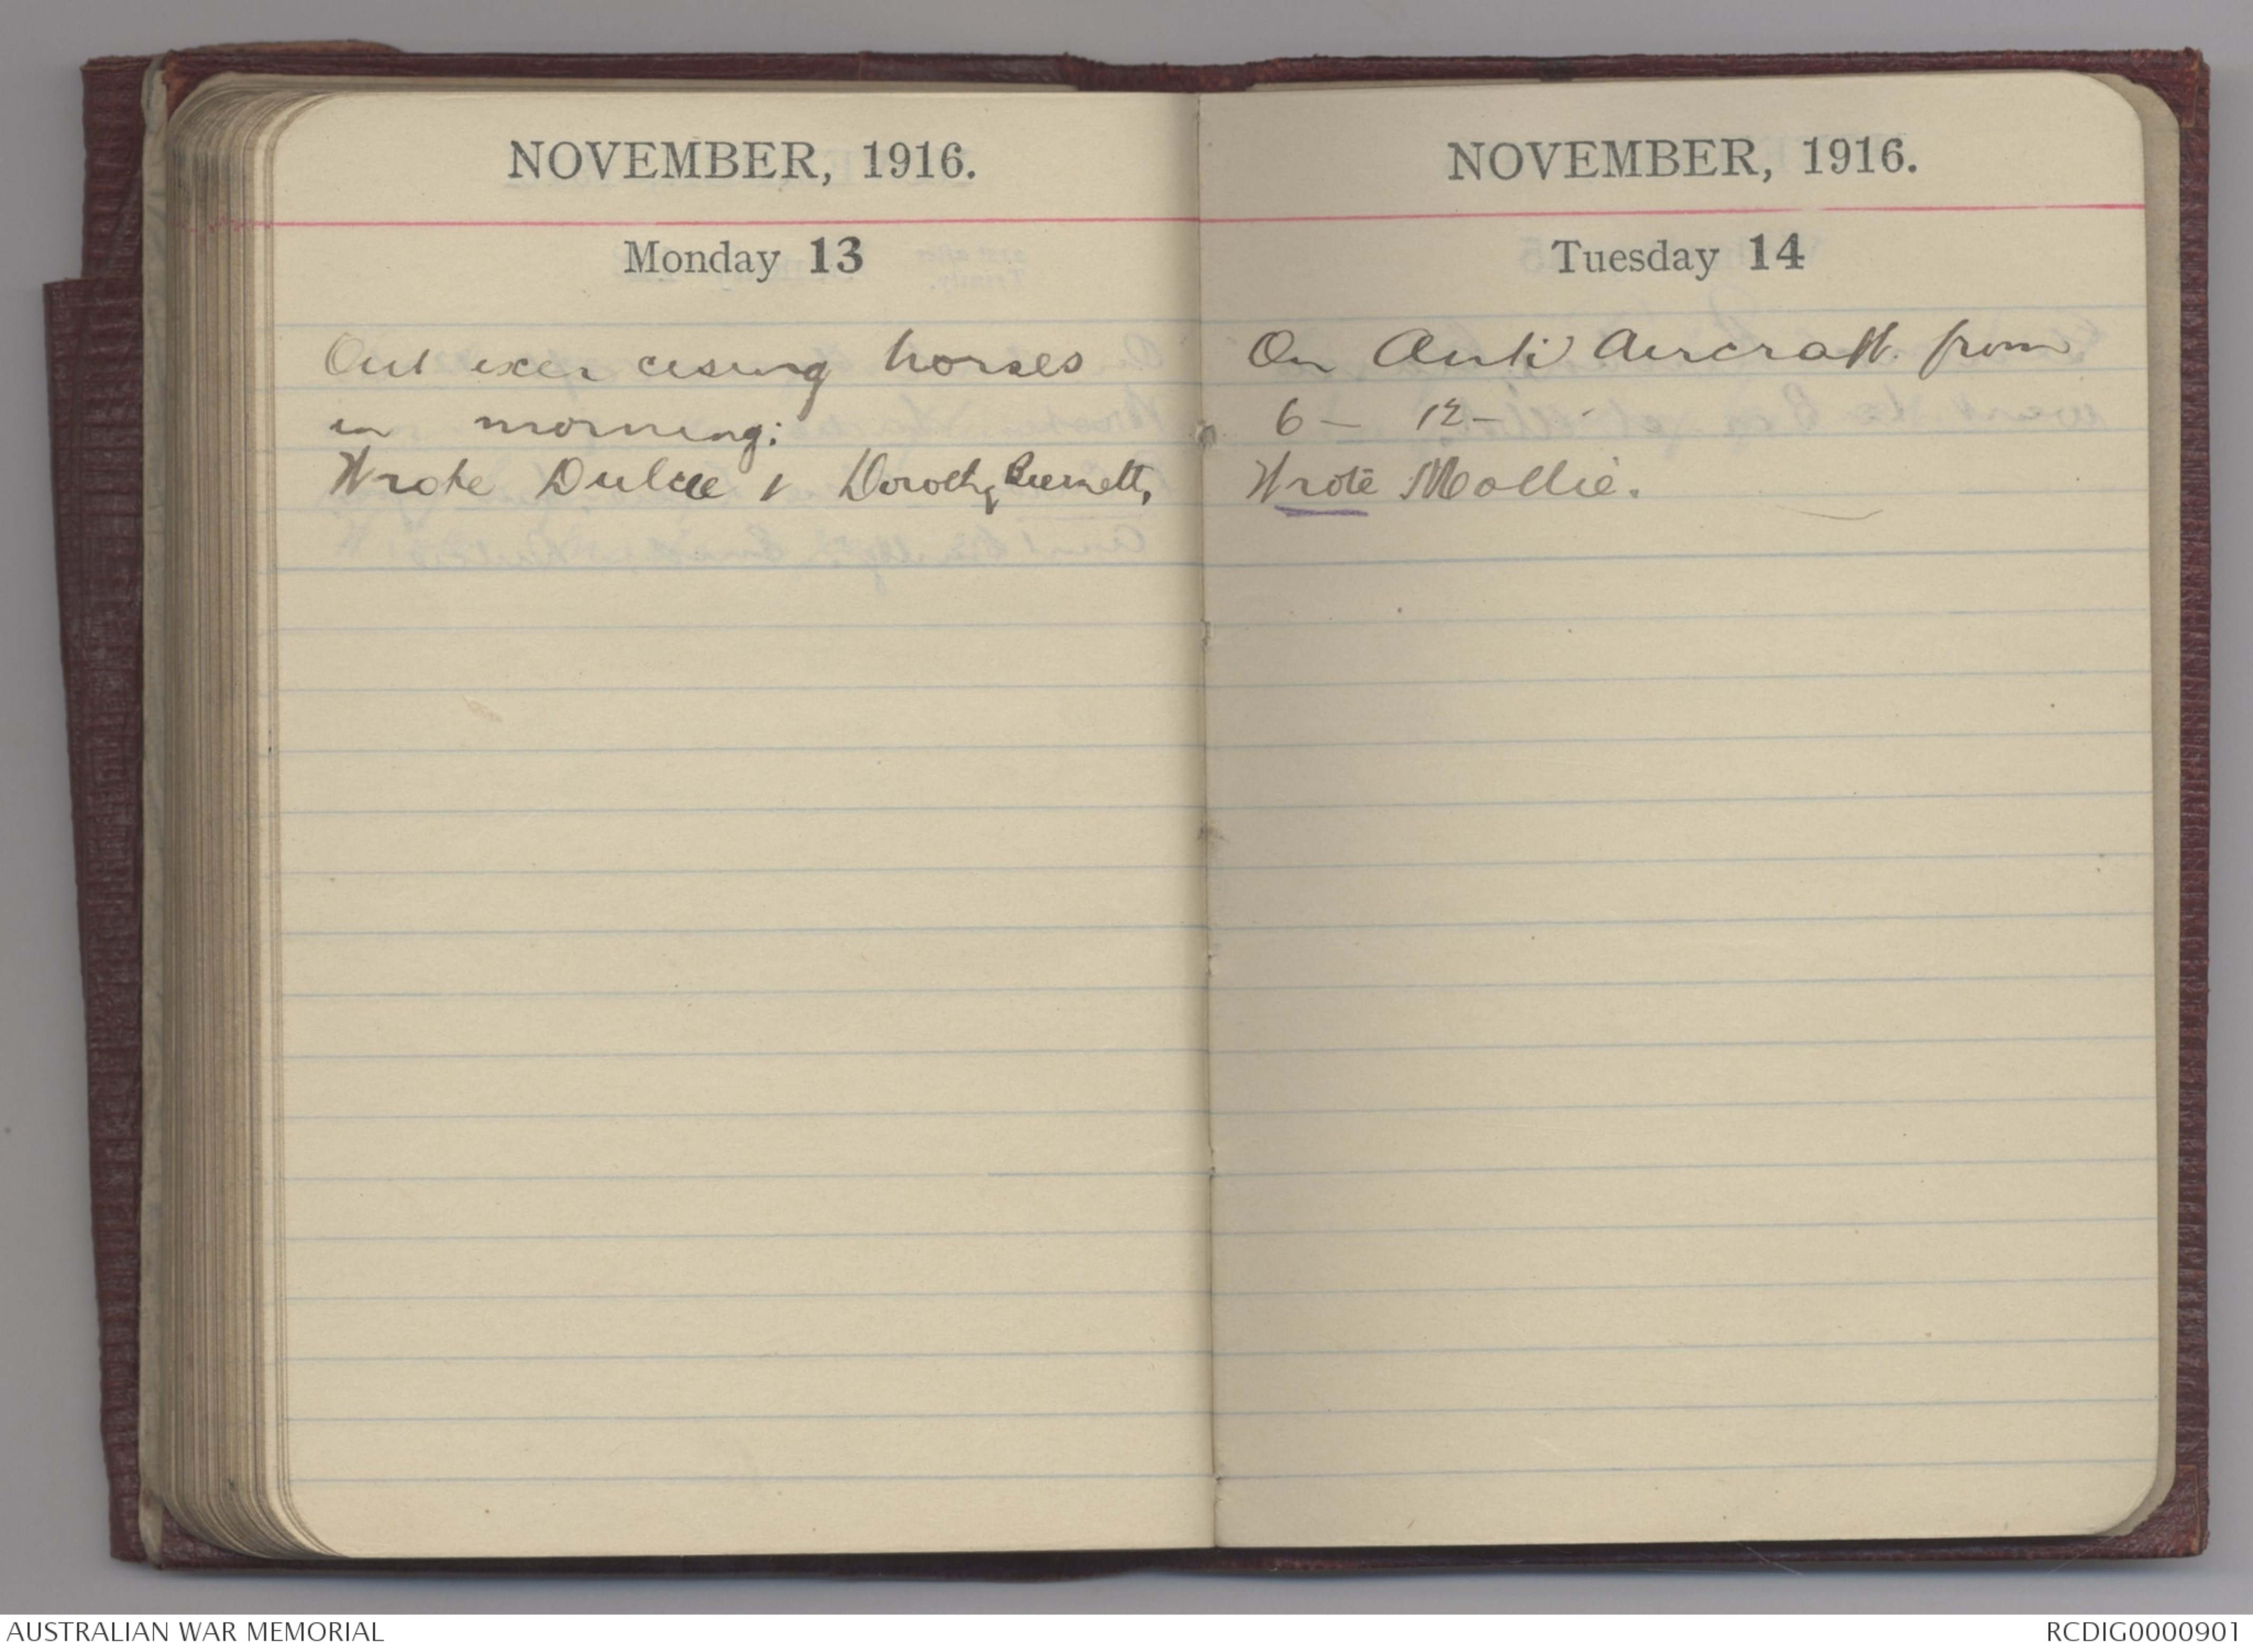 NOVEMBER, 1916.
Monday 13
Out exercising horses
in morning:
Wrote Dulcie & Dorothy Burnett,
NOVEMBER, 1916.
Tuesday 14
On Anti Aircraft. from
6 – 12 –
Wrote Mollie.
AUSTRALIAN WAR MEMORIAL
RCDIG0000901